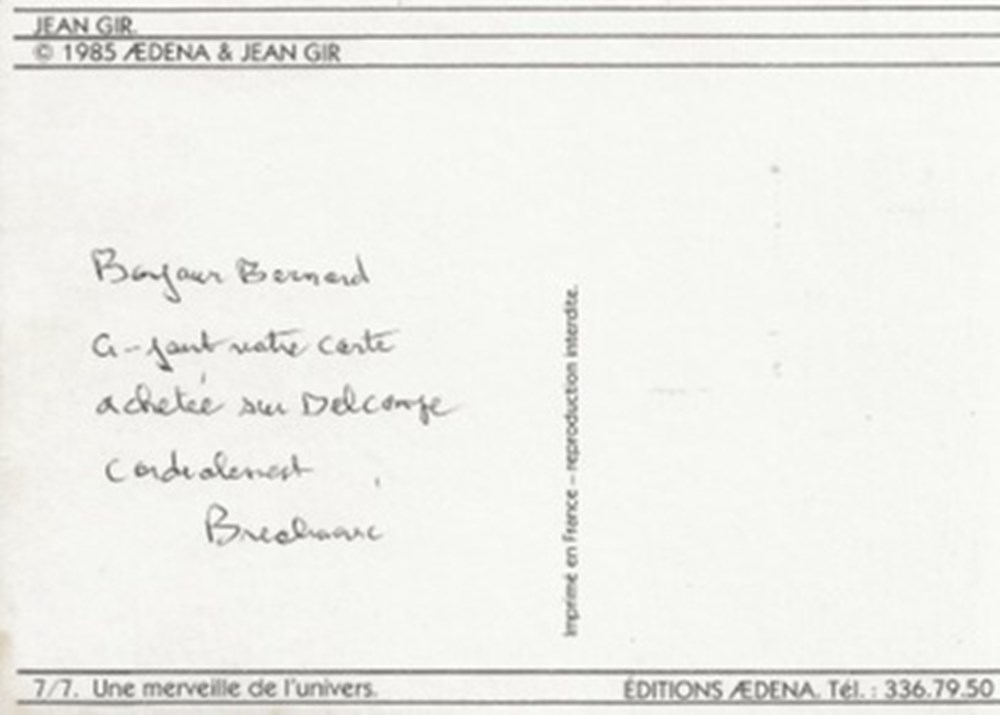 JEAN GIR.
© 1985 ÆDENA & JEAN GIR
Bonjour Bernard
Ci-joint votre carte
achetée sur Delcampe
Cordialement
Imprimé en France – reproduction interdite.
7/7. Une merveille de l'univers.
ÉDITIONS ÆDENA. Tél. : 336.79.50